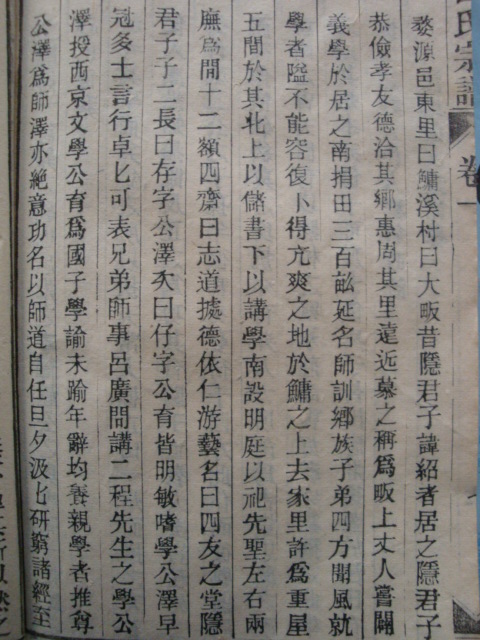 氏宗譜
卷一
婺源邑東里曰鱅溪村曰大畈昔隱君子諱紹者居之隱君子
恭儉孝友德洽其鄉惠周其里遠近慕之稱爲畈上丈人嘗闢
義學於居之南捐田三百畝延名師訓鄉族子弟四方聞風就
學者隘不能容復卜得亢爽之地於鱅之上去家里許爲重屋
五間於其北上以儲書下以講學南設明庭以祀先聖左右兩
廡爲開十二額四齋曰志道據德依仁游藝名曰四友之堂隱
君子子二長曰存字公澤次曰仔字公育皆明敏嗜學公澤早
冠多士言行卓匕可表兄弟師事呂廣問講二程先生之學公
澤授西京文學公育爲國子學諭未踰年辭均養親學者推尊
公澤爲師澤亦絶意功名以師道自任旦夕汲匕研窮諸經至